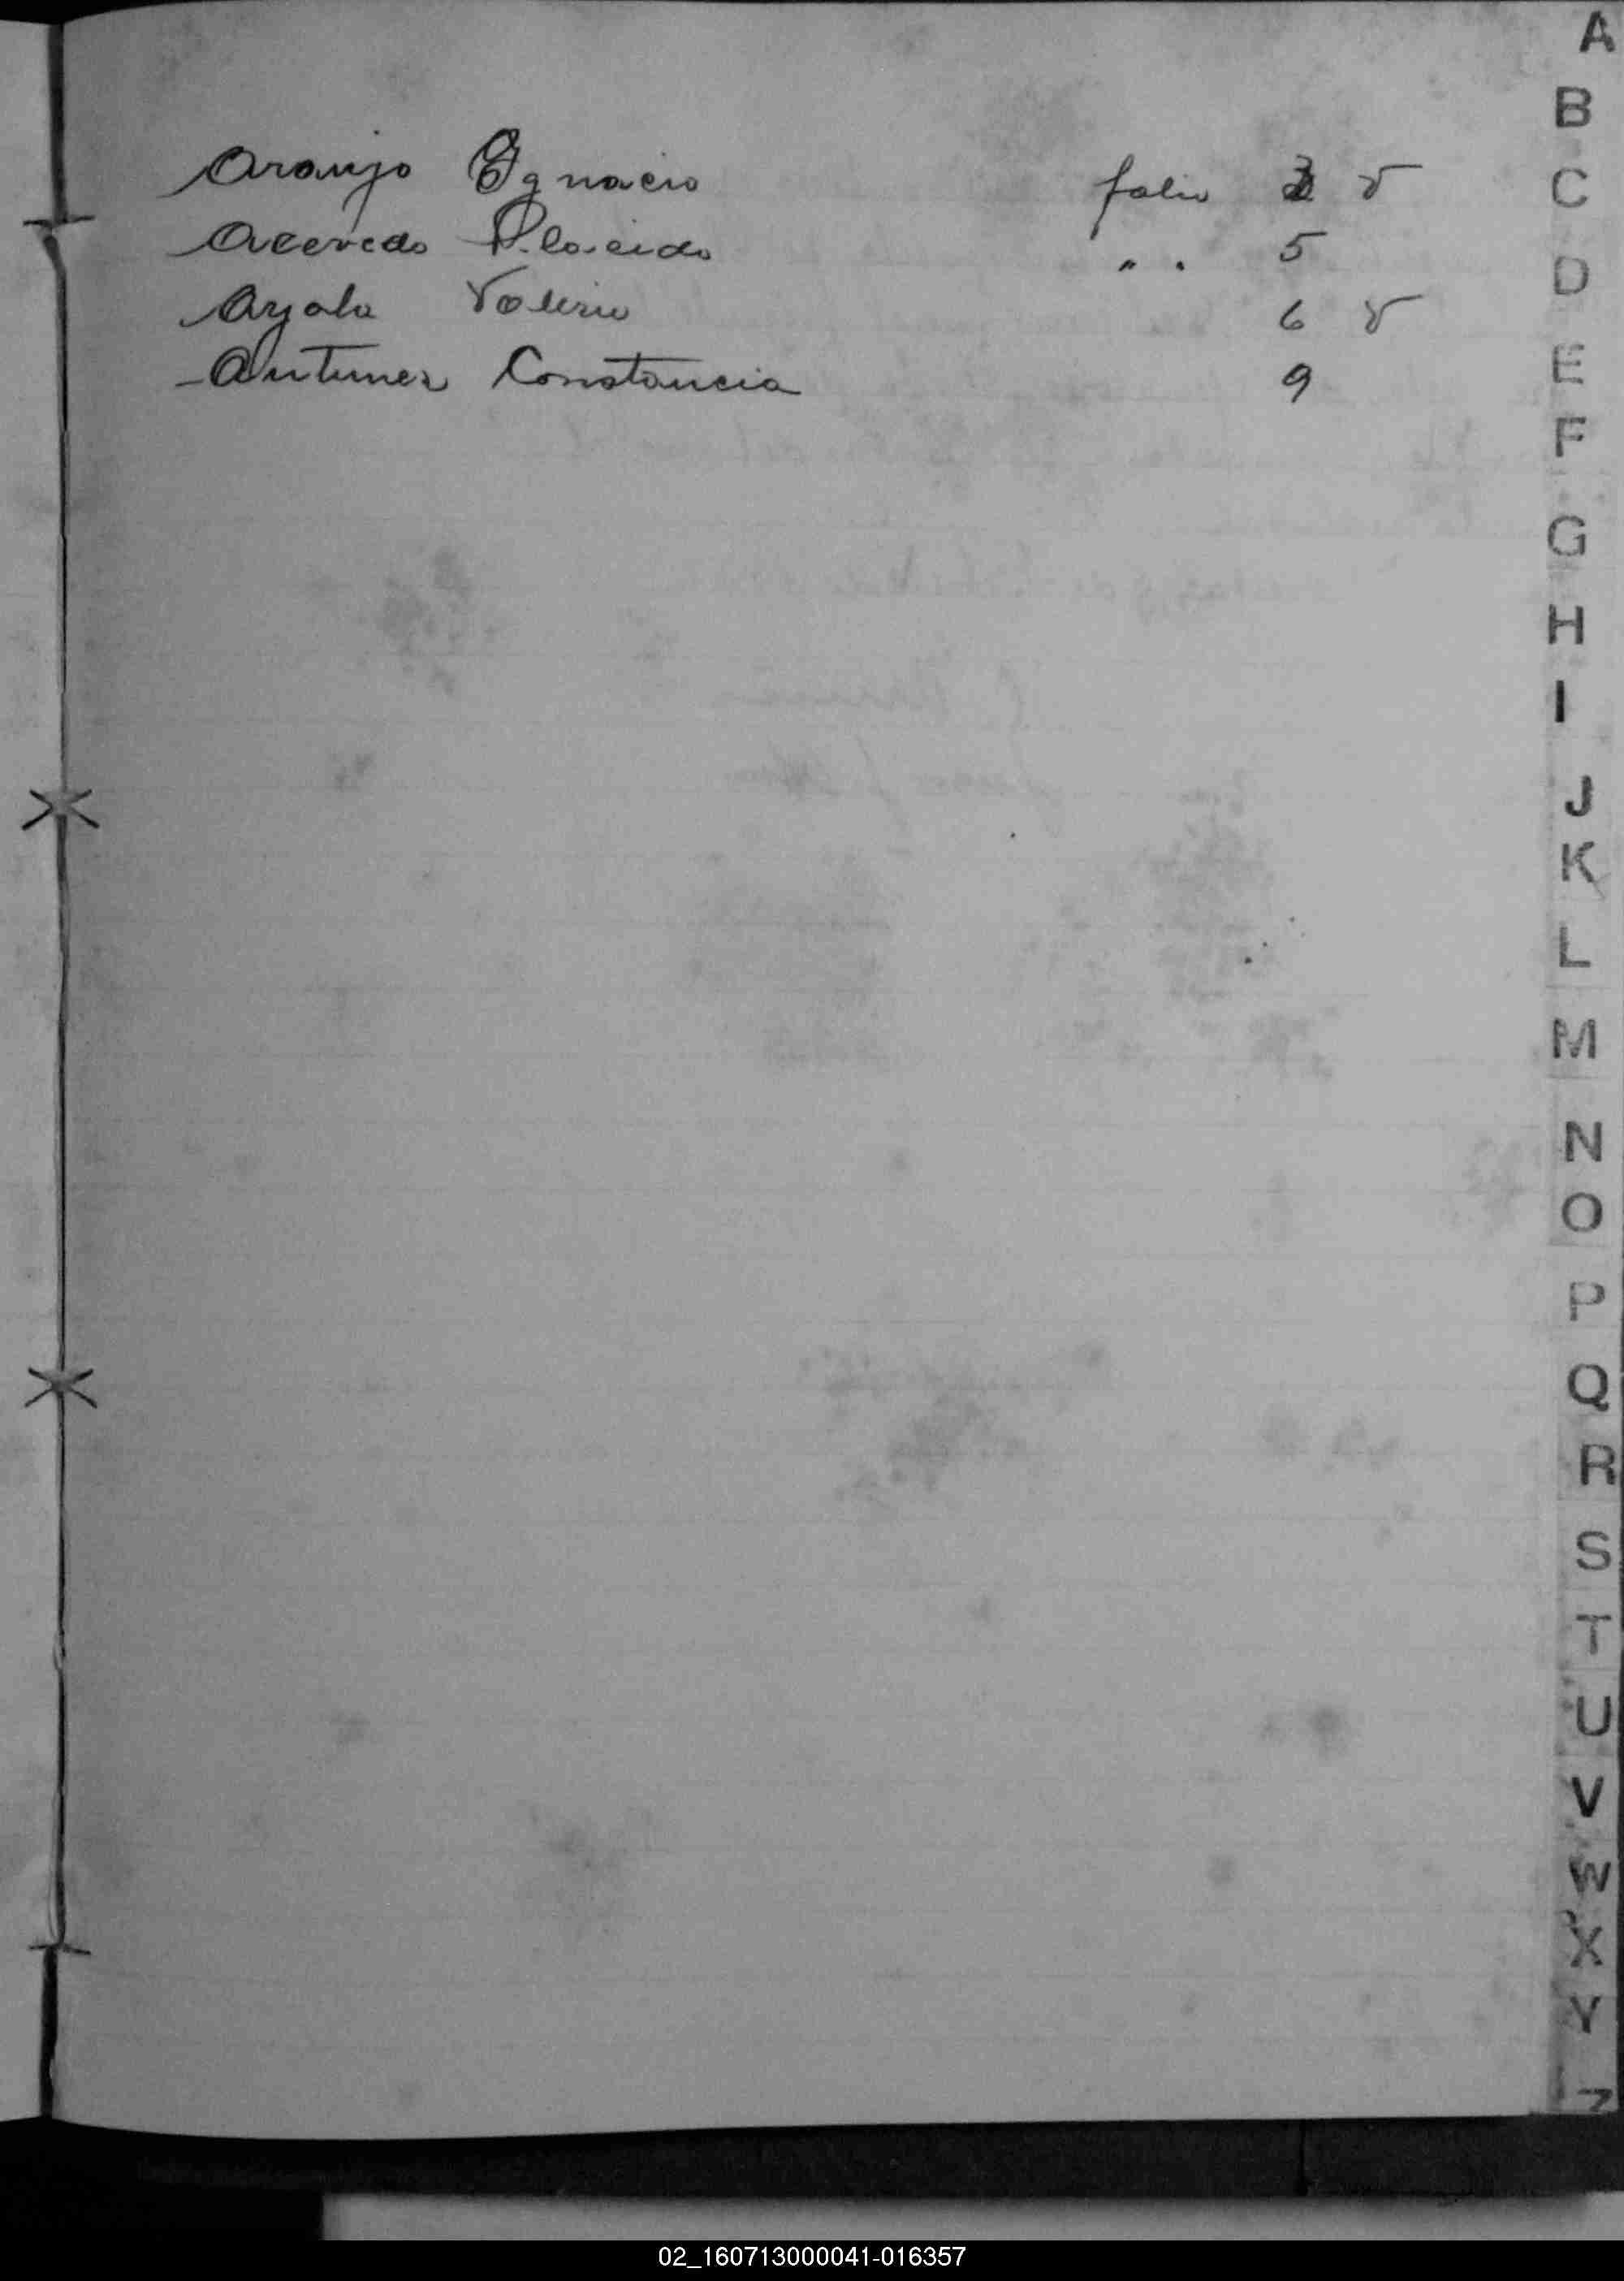 A
B
Araujo Ygnacio folio 3 v
C
Acevedo Placido " " 5
D
Ayala Valerio 6 v
E
Antunez Constancia 9
F
G
H
I
J
K
L
M
N
O
P
Q
R
S
T
U
V
W
X
Y
Z
02_160713000041-016357